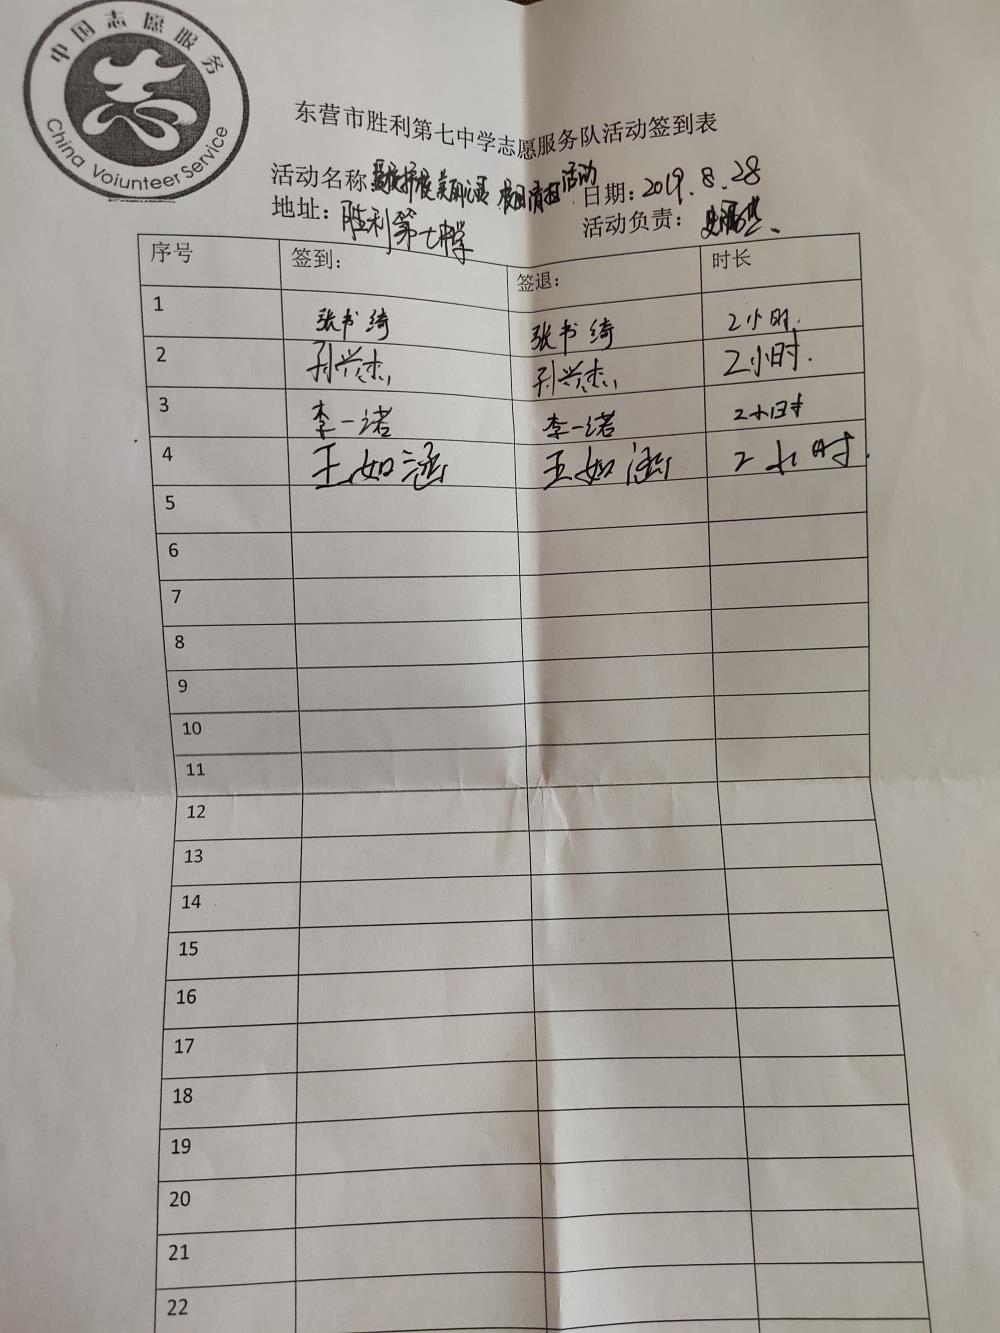 中国志愿服务
China Voiunteer Service
东营市胜利第七中学志愿服务队活动签到表
活动名称 美丽 校园清扫活动 日期：2019.8.28
地址：胜利第七中学 活动负责：
序号 签到： 签退： 时长
1 张书绮 张书绮 2小时.
2 孙兴杰 孙兴杰 2小时.
3 李一诺 李一诺 2小时
4 王如涵 王如涵 2小时.
5
6
7
8
9
10
11
12
13
14
15
16
17
18
19
20
21
22